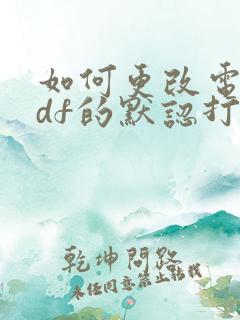 如何更改電
df的默認打
乾坤問路
未經同意禁止轉載